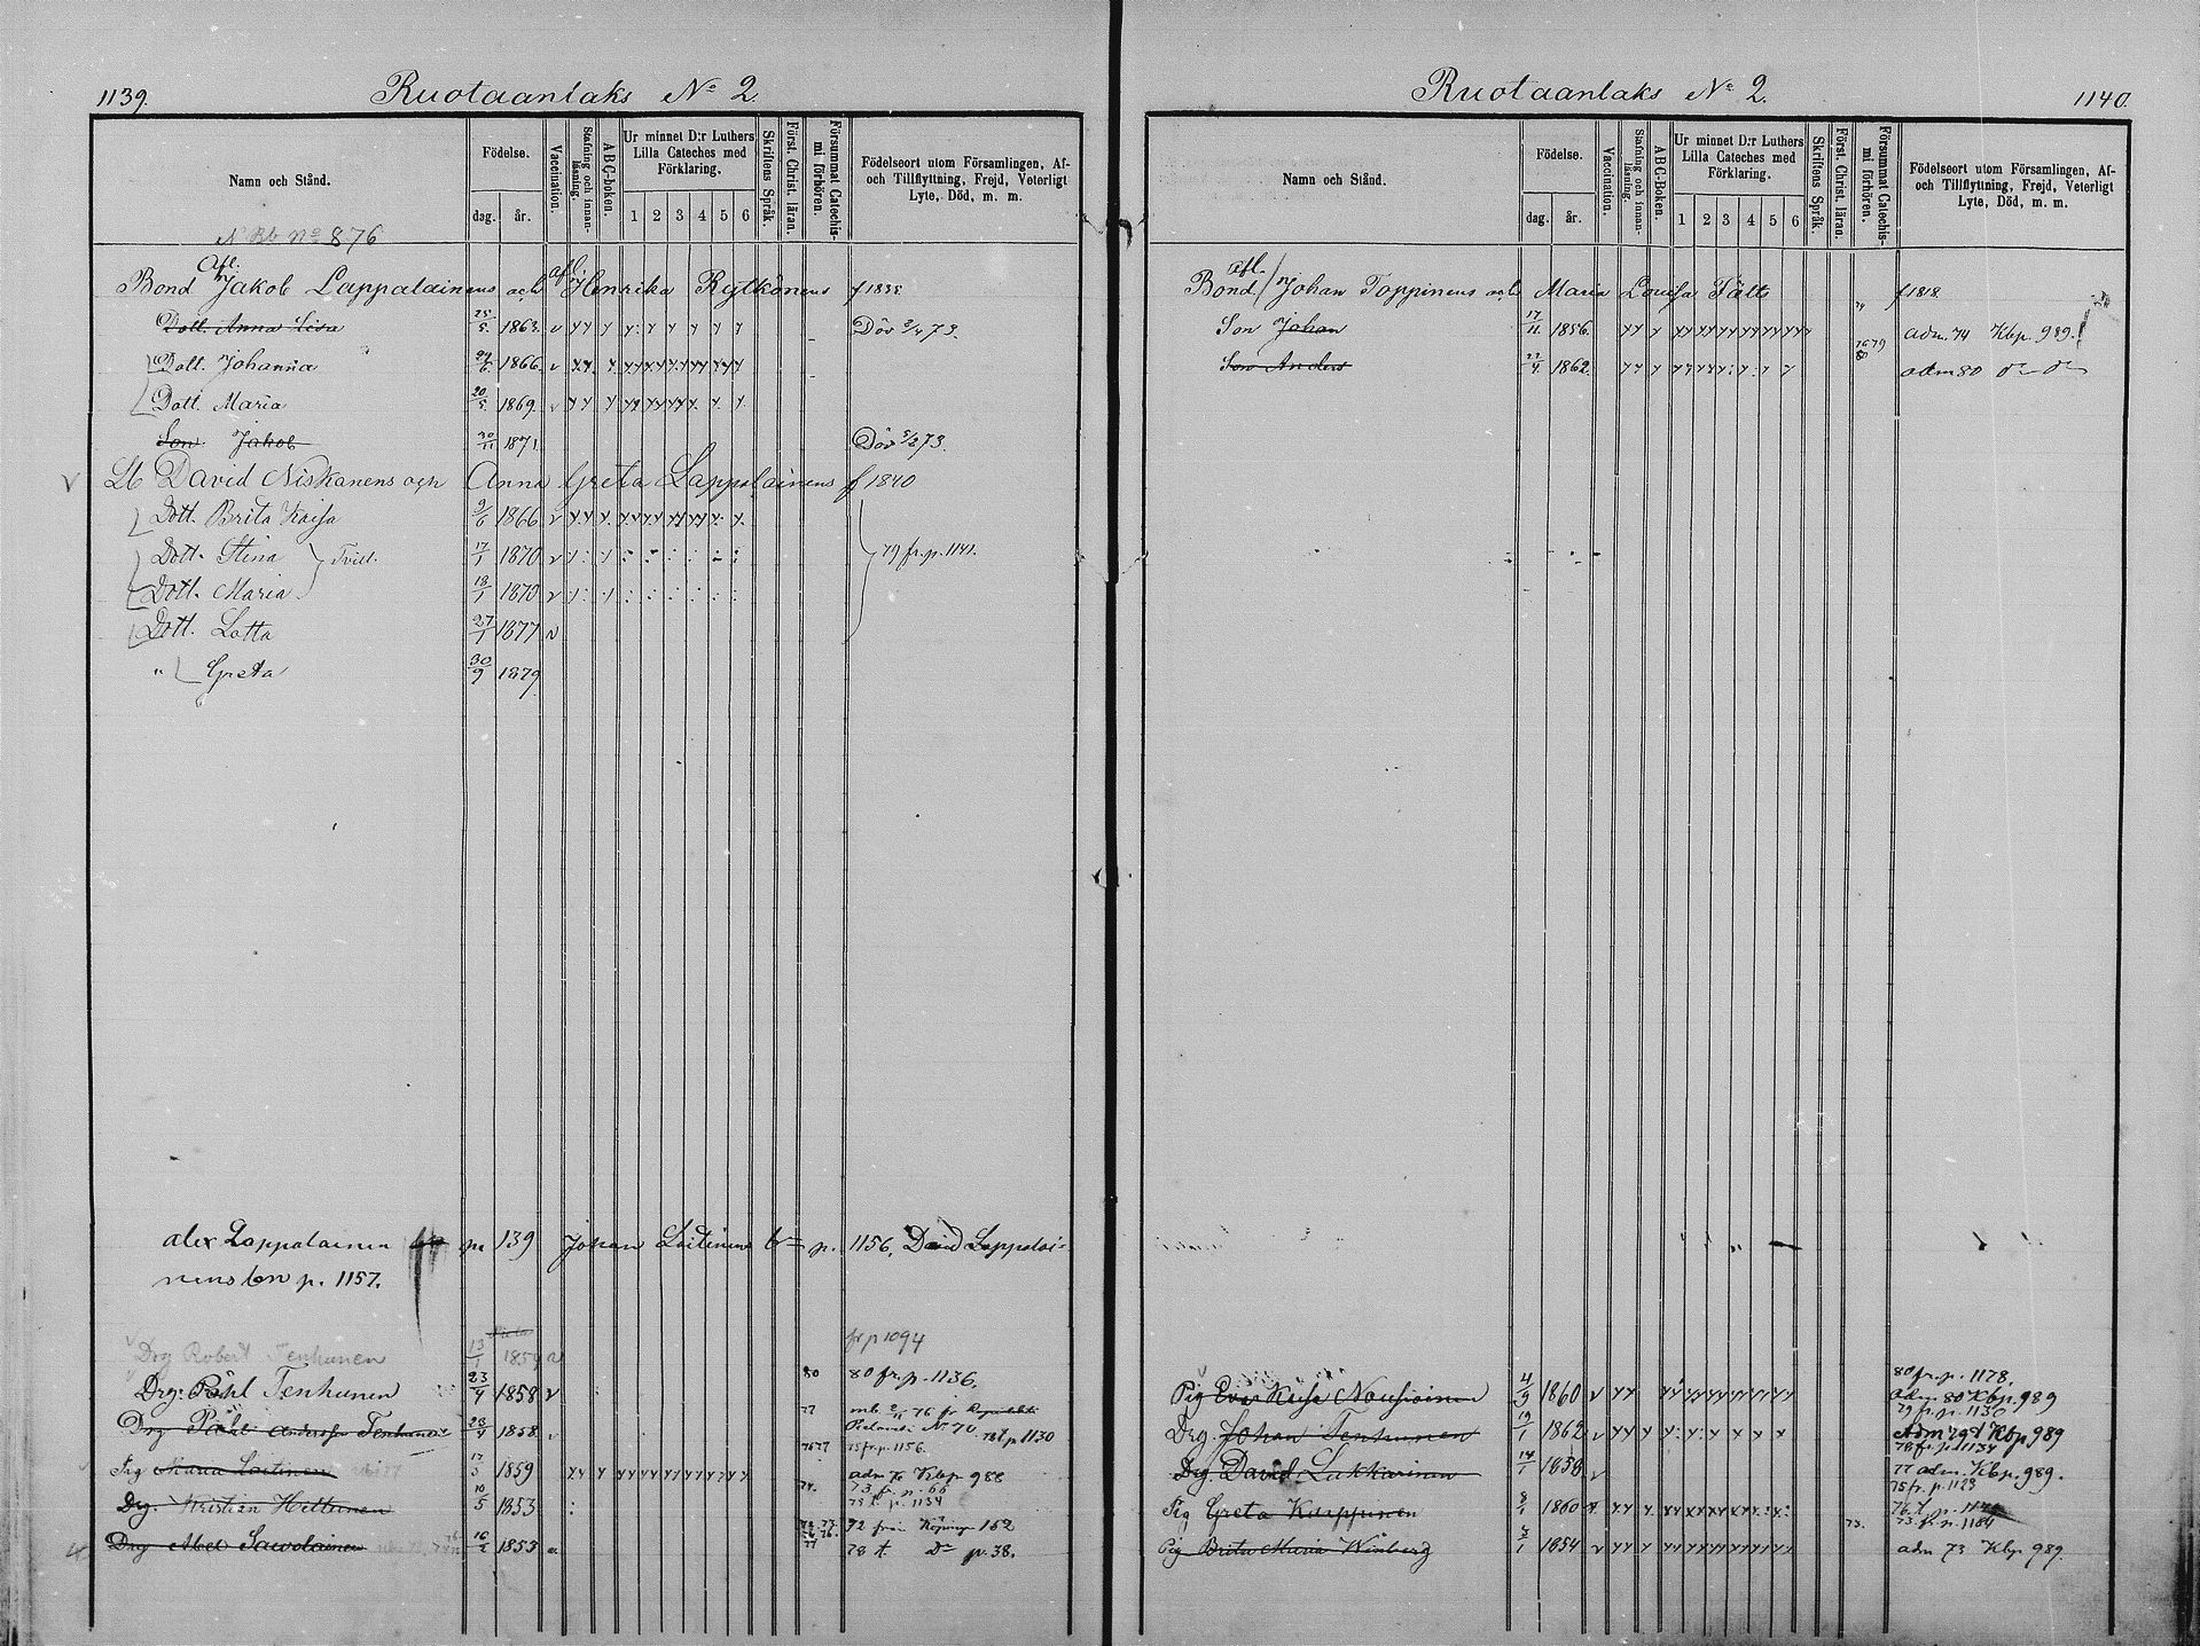 1139.
Ruotaanlaks No 2.
Namn och Stånd.
Födelse.
dag. år.
Vaccination.
Stafning och innan-
läsning.
ABC-boken.
Ur minnet D:r Luthers
Lilla Cateches med
Förklaring.
1 2 3 4 5 6
Skriftens Språk.
Först. Christ. läran.
Försummat Catechis-
mi förhören.
Födelseort utom Församlingen, Af-
och Tillflyttning, Frejd, Veterligt
Lyte, Död, m. m.
N Bb No 876
Bond afl. Jakob Lappalainens och afl. Henrika Rytkönens f 1835
Dott. Anna Lisa 25/5 1863. Död 3/4 73.
Dott. Johanna 24/6 1866.
Dott. Maria 20/5 1869.
Son Jakob 30/11 1871. Död 5/2 73.
Lb David Niskanens och Anna Greta Lappalainens f 1840
Dott. Brita Kaisa 9/6 1866
Dott. Stina 17/1 1870 Tvill. 79 fr. p. 1141.
Dott. Maria 18/1 1870
Dott. Lotta 27/1 1877
" Greta 30/9 1879
alex Lappalainen p. 139 Johan Laitinens bn p. 1156, David Lappalai-
nens bn p. 1157.
fr p 1094
Drg Robert Tenhunen 13/1 1859
Drg. Påhl Tenhunen 23/4 1858 80 80 fr. p. 1136.
Drg Påhl Andersson Tenhunen 23/4 1858 77 mb 2/11 76 fr
Pielavesi No 70 78 t p 1130
Pig Maria Laitinen 17/5 1859 76 77 75 fr. p. 1156.
adm 78 Kbp 988
Drg. Kristian Hettunen 10/5 1853 74. 73 fr. p. 66
75 t. p. 1134
Drg Abel Sawolainen 16/2 1853 72 från Köpinge 152
78 t. Do p. 38.
1140.
Ruotaanlaks No 2.
Namn och Stånd.
Födelse.
dag. år.
Vaccination.
Stafning och innan-
läsning.
ABC-Boken.
Ur minnet D:r Luthers
Lilla Cateches med
Förklaring.
1 2 3 4 5 6
Skriftens Språk.
Först. Christ. läran.
Försummat Catechis-
mi förhören.
Födelseort utom Församlingen, Af-
och Tillflyttning, Frejd, Veterligt
Lyte, Död, m. m.
Bond afl. Johan Toppinens och Maria Lovisa Fält f 1818.
Son Johan 17/11 1856. adm. 74 Kbp. 989.
Son Anders 22/4 1862. adm 80 do do
80 fr. p. 1178,
Pig Eva Kaisa Nousiainen 4/9 1860 adm. 80 Kbp. 989
79 fr. p. 1130
Drg. Johan Tenhunen 19/1 1862 adm 79 t Kbp 989
78 fr. p. 1134
Drg. David Lukkarinen 14/1 1858 77 adm. Kbp. 989.
75 fr. p. 1123
Pig Greta Kauppinen 8/1 1860 76 t. p.
73. fr. p. 1184
Pig Brita Maria Winberg 1854 73. adm 73 Kbp 989.